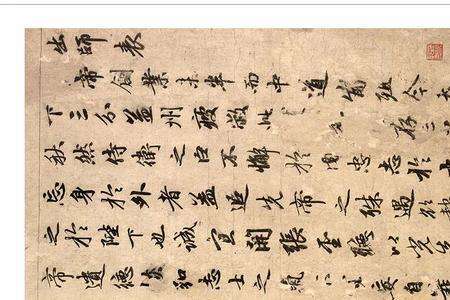 出師表
帝創業未半而中道崩殂今
下三分益州疲敝此存
秋然侍衛之臣不懈於内忠志於
忘身於外者蓋追先帝之殊遇
之於陛下也誠宜開張聖聽以光
帝遺德恢弘志士之氣不宜妄自